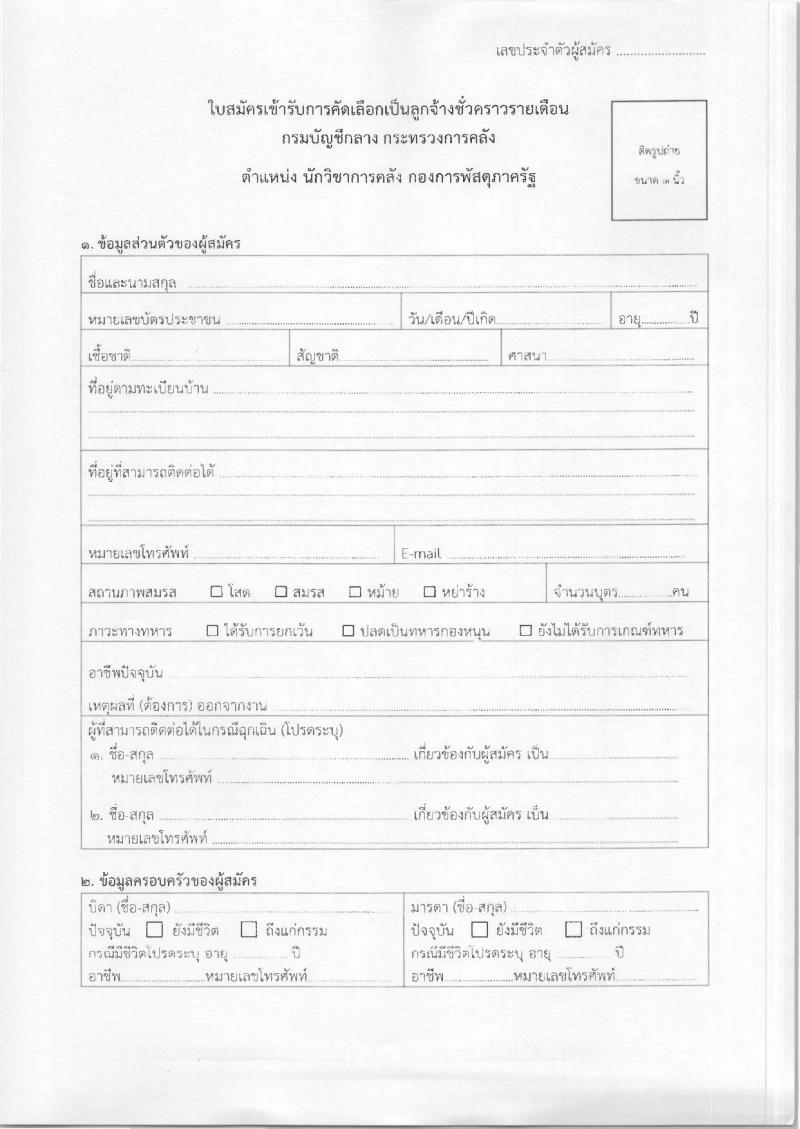 เลขประจำตัวผู้สมัคร ..........................
ใบสมัครเข้ารับการคัดเลือกเป็นลูกจ้างชั่วคราวรายเดือน
กรมบัญชีกลาง กระทรวงการคลัง
ติดรูปถ่าย
ขนาด ๑ นิ้ว
ตำแหน่ง นักวิชาการคลัง กองการพัสดุภาครัฐ
๑. ข้อมูลส่วนตัวของผู้สมัคร
ชื่อและนามสกุล ..........................
หมายเลขบัตรประชาชน .......................... วัน/เดือน/ปีเกิด.......................... อายุ..............ปี
เชื้อชาติ.......................... สัญชาติ.......................... ศาสนา..........................
ที่อยู่ตามทะเบียนบ้าน ..........................
ที่อยู่ที่สามารถติดต่อได้ ..........................
หมายเลขโทรศัพท์ .......................... E-mail ..........................
สถานภาพสมรส ☐ โสด ☐ สมรส ☐ หม้าย ☐ หย่าร้าง จำนวนบุตร..............คน
ภาวะทางทหาร ☐ ได้รับการยกเว้น ☐ ปลดเป็นทหารกองหนุน ☐ ยังไม่ได้รับการเกณฑ์ทหาร
อาชีพปัจจุบัน ..........................
เหตุผลที่ (ต้องการ) ออกจากงาน ..........................
ผู้ที่สามารถติดต่อได้ในกรณีฉุกเฉิน (โปรดระบุ)
๑. ชื่อ-สกุล .......................... เกี่ยวข้องกับผู้สมัคร เป็น..........................
หมายเลขโทรศัพท์ ..........................
๒. ชื่อ-สกุล .......................... เกี่ยวข้องกับผู้สมัคร เป็น..........................
หมายเลขโทรศัพท์ ..........................
๒. ข้อมูลครอบครัวของผู้สมัคร
บิดา (ชื่อ-สกุล).......................... มารดา (ชื่อ-สกุล)..........................
ปัจจุบัน ☐ ยังมีชีวิต ☐ ถึงแก่กรรม ปัจจุบัน ☐ ยังมีชีวิต ☐ ถึงแก่กรรม
กรณีมีชีวิตโปรดระบุ อายุ .............. ปี กรณีมีชีวิตโปรดระบุ อายุ .............. ปี
อาชีพ......................หมายเลขโทรศัพท์...................... อาชีพ......................หมายเลขโทรศัพท์......................